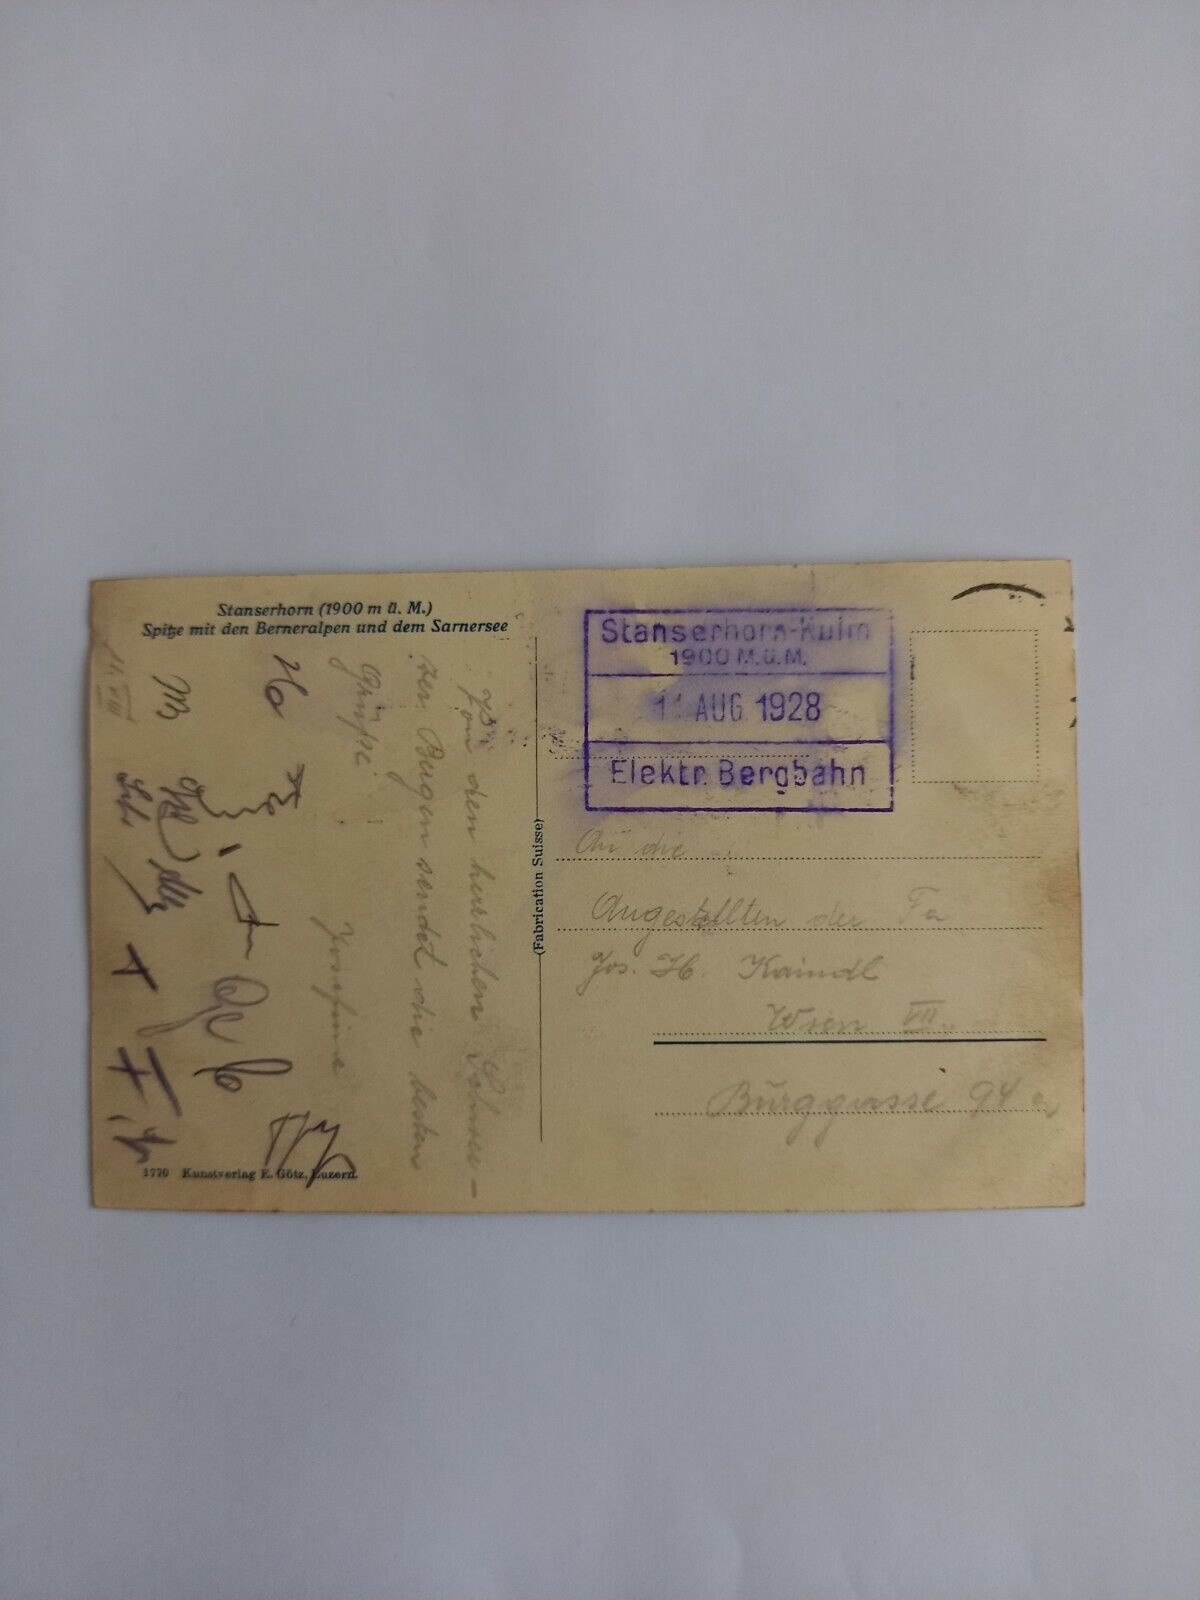 Stanserhorn (1900 m ü. M.)
Spitze mit den Berneralpen und dem Sarnersee
Von den herrlichen Schwei-
zer Bergen sendet die besten
Grüsse
Josefine
11. VIII
1770 Kunstverlag E. Götz, Luzern.
(Fabrication Suisse)
Stanserhorn-Kulm
1900 M.ü.M.
11 AUG 1928
Elektr. Bergbahn
An die
Angestellten der Fa
Jos. H. Kaindl
Wien VII.
Burggasse 94 a